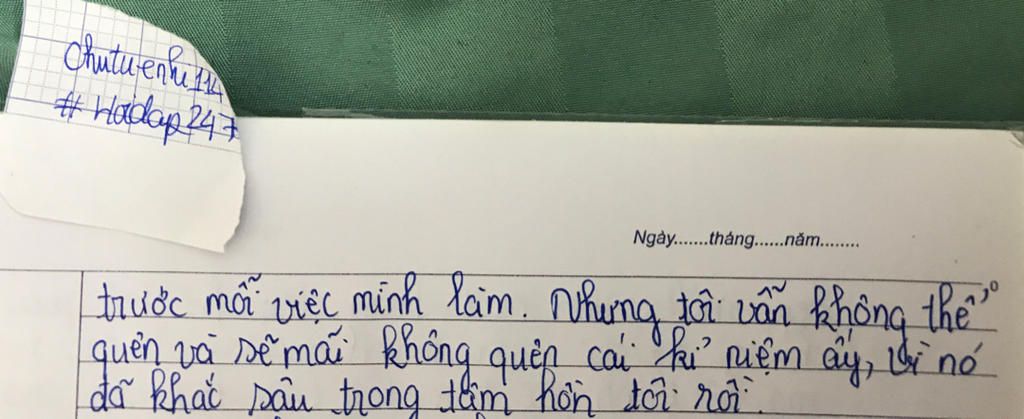 chutuenhi114
# Hoidap247
Ngày.......tháng......năm........
trước mỗi việc mình làm. Nhưng tôi vẫn không thể
quên và sẽ mãi không quên cái kỉ niệm ấy, vì nó
đã khắc sâu trong tâm hồn tôi rồi.